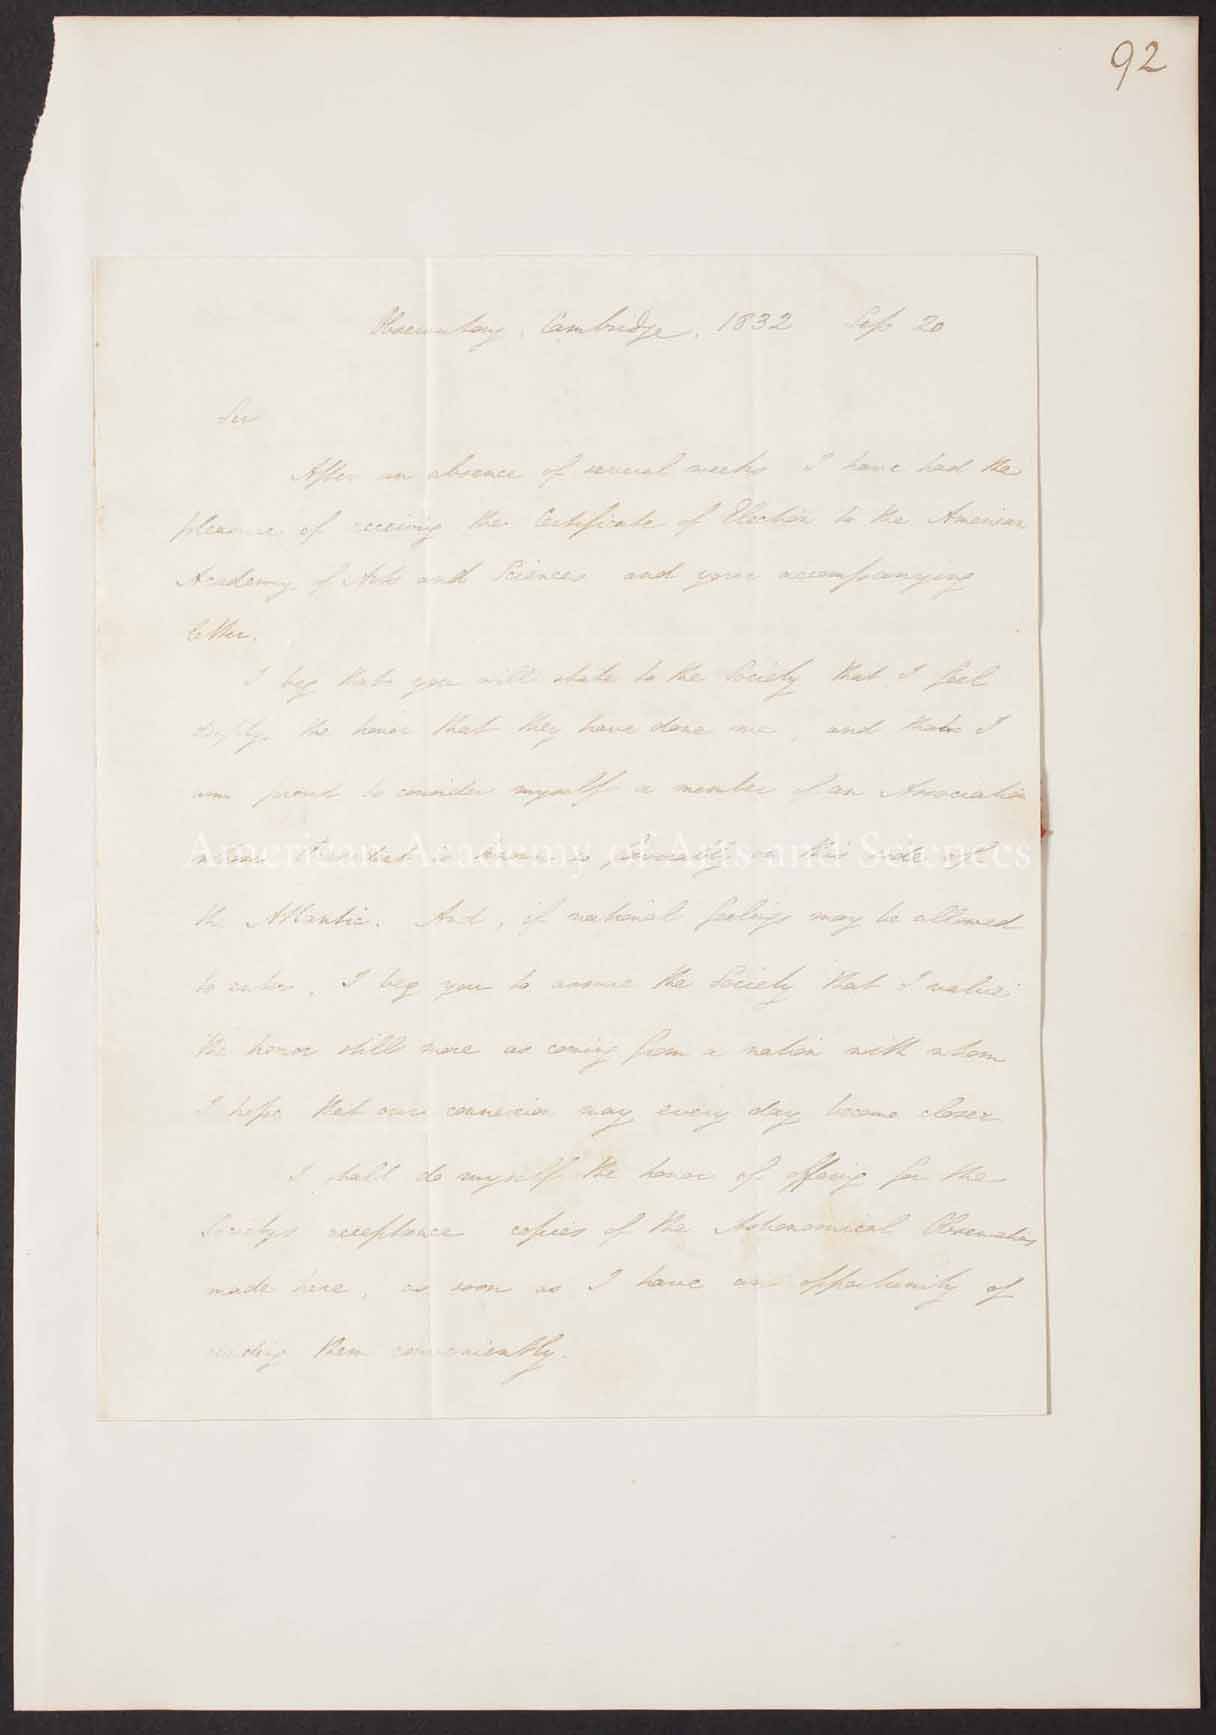 92
Observatory, Cambridge, 1832 Sep 20
Sir
After an absence of several weeks I have had the
pleasure of receiving the Certificate of Election to the American
Academy of Arts and Sciences and your accompanying
letter.
I beg that you will state to the Society that I feel
deeply the honor that they have done me, and that I
am proud to consider myself a member of an Association
American Academy of Arts and Sciences
is known so favorably on this side of
the Atlantic. And, if national feelings may be allowed
to enter, I beg you to assure the Society that I value
the honor still more as coming from a nation with whom
I hope that our connexion may every day become closer
I shall do myself the honor of offering for the
Societys acceptance copies of the Astronomical Observations
made here, as soon as I have an opportunity of
sending them conveniently.